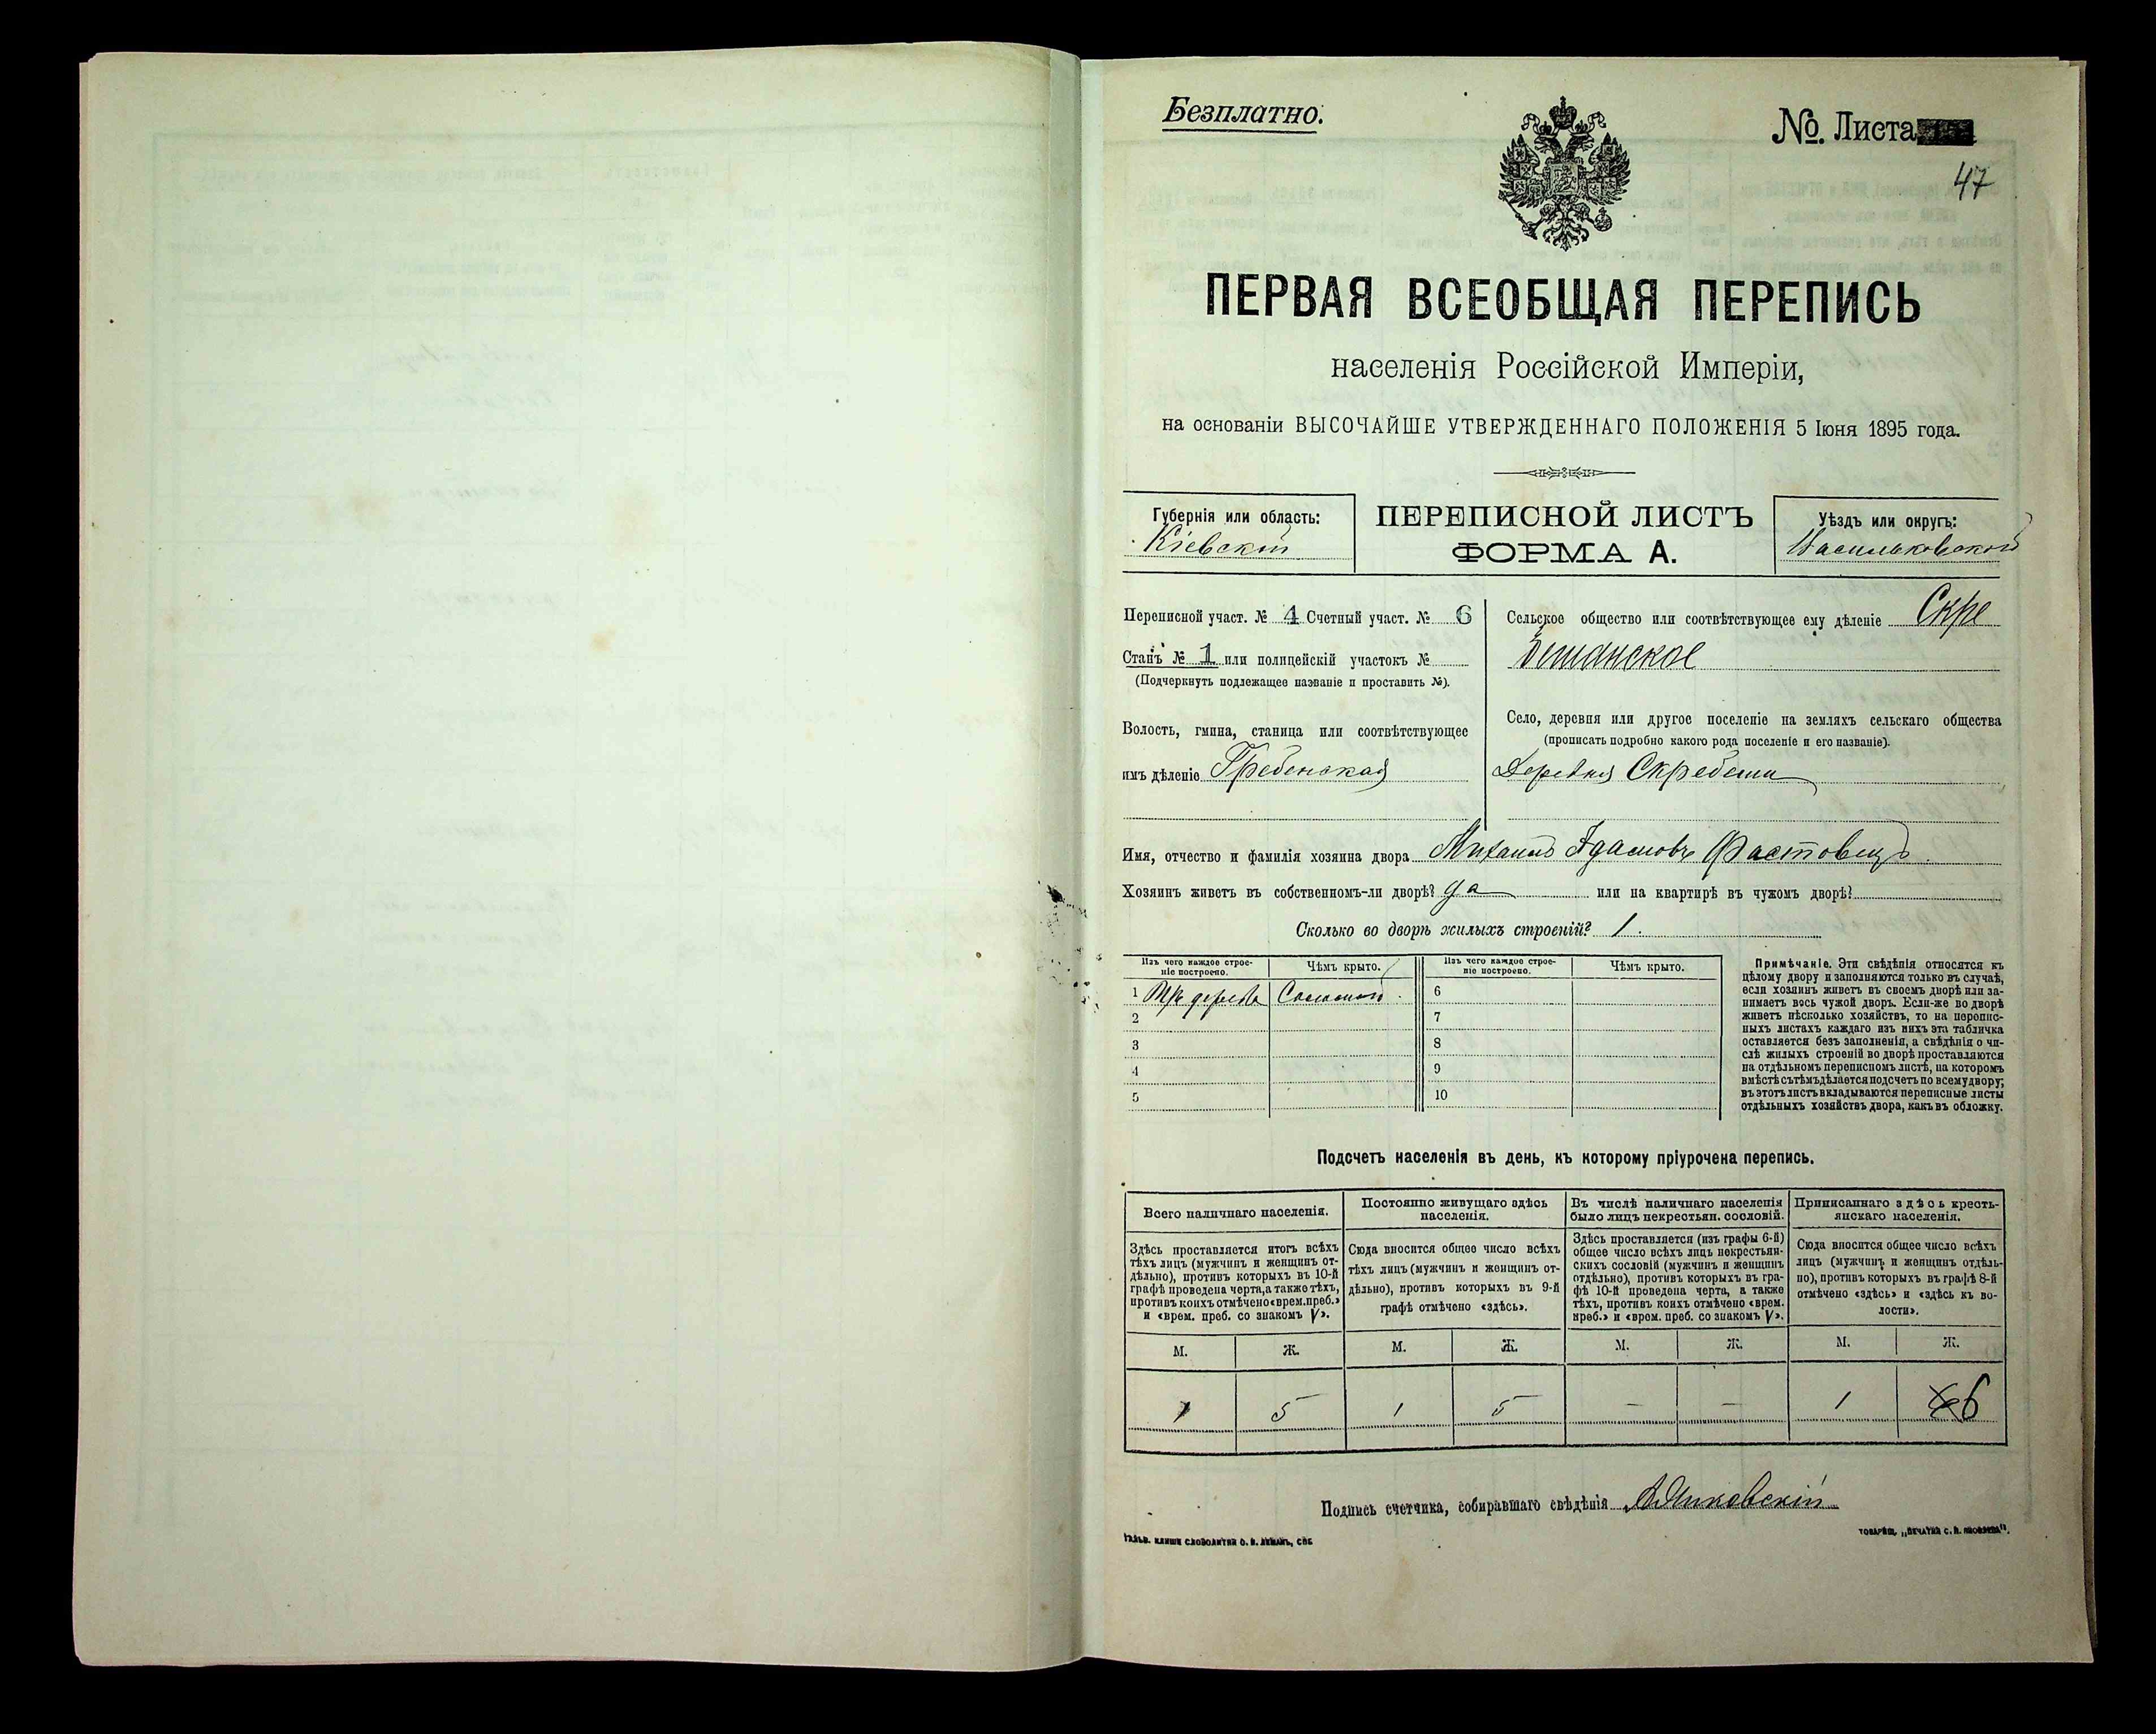 Безплатно.
№ Листа
47
ПЕРВАЯ ВСЕОБЩАЯ ПЕРЕПИСЬ
населенія Россійской Имперіи,
на основаніи ВЫСОЧАЙШЕ УТВЕРЖДЕННАГО ПОЛОЖЕНІЯ 5 Іюня 1895 года.
Губернія или область:
Кіевскій
ПЕРЕПИСНОЙ ЛИСТЪ
ФОРМА А.
Уѣздъ или округъ:
Васильковской
Переписной участ. № 4 Счетный участ. № 6
Станъ № 1 или полицейскій участокъ №
(Подчеркнуть подлежащее названіе и проставить №).
Волость, гмина, станица или соотвѣтствующее
имъ дѣленіе Гребенская
Сельское общество или соотвѣтствующее ему дѣленіе Скре
бешанское
Село, деревня или другое поселеніе на земляхъ сельскаго общества
(прописать подробно какого рода поселеніе и его названіе).
Деревня Скребеши
Имя, отчество и фамилія хозяина двора Михаилъ Адамовъ Фастовецъ
Хозяинъ живетъ въ собственномъ-ли дворѣ? да или на квартирѣ въ чужомъ дворѣ?
Сколько во дворѣ жилыхъ строеній? 1.
Изъ чего каждое строе-
ніе построено.
Чѣмъ крыто.
1 дерева Соломой.
2
3
4
5
Изъ чего каждое строе-
ніе построено.
Чѣмъ крыто.
6
7
8
9
10
Примѣчаніе. Эти свѣдѣнія относятся къ
цѣлому двору и заполняются только въ случаѣ,
если хозяинъ живетъ въ своемъ дворѣ или за-
нимаетъ весь чужой дворъ. Если-же во дворѣ
живетъ нѣсколько хозяйствъ, то на перепис-
ныхъ листахъ каждаго изъ нихъ эта табличка
оставляется безъ заполненія, а свѣдѣнія о чи-
слѣ жилыхъ строеній во дворѣ проставляются
на отдѣльномъ переписномъ листѣ, на которомъ
вмѣстѣ съ тѣмъ дѣлается подсчетъ по всему двору;
въ этотъ листъ вкладываются переписные листы
отдѣльныхъ хозяйствъ двора, какъ въ обложку.
Подсчетъ населенія въ день, къ которому пріурочена перепись.
Всего наличнаго населенія.
Здѣсь проставляется итогъ всѣхъ
тѣхъ лицъ (мужчинъ и женщинъ от-
дѣльно), противъ которыхъ въ 10-й
графѣ проведена черта, а также тѣхъ,
противъ коихъ отмѣчено «врем. преб.»
и «врем. преб. со знакомъ V».
Постоянно живущаго здѣсь
населенія.
Сюда вносится общее число всѣхъ
тѣхъ лицъ (мужчинъ и женщинъ от-
дѣльно), противъ которыхъ въ 9-й
графѣ отмѣчено «здѣсь».
Въ числѣ наличнаго населенія
было лицъ некрестьян. сословій.
Здѣсь проставляется (изъ графы 6-й)
общее число всѣхъ лицъ некрестьян-
скихъ сословій (мужчинъ и женщинъ
отдѣльно), противъ которыхъ въ гра-
фѣ 10-й проведена черта, а также
тѣхъ, противъ коихъ отмѣчено «врем.
преб.» и «врем. преб. со знакомъ V».
Приписаннаго здѣсь кресть-
янскаго населенія.
Сюда вносится общее число всѣхъ
лицъ (мужчинъ и женщинъ отдѣль-
но), противъ которыхъ въ графѣ 8-й
отмѣчено «здѣсь» и «здѣсь къ во-
лости».
М. Ж. М. Ж. М. Ж. М. Ж.
1 5 1 5 — — 1 6
Подпись счетчика, собиравшаго свѣдѣнія
ГАЛЬВ. КЛИШЕ СЛОВОЛИТНИ О. И. ЛЕМАНЪ, СПБ
ТОВАРИЩ. „ПЕЧАТНЯ С. П. ЯКОВЛЕВА“.